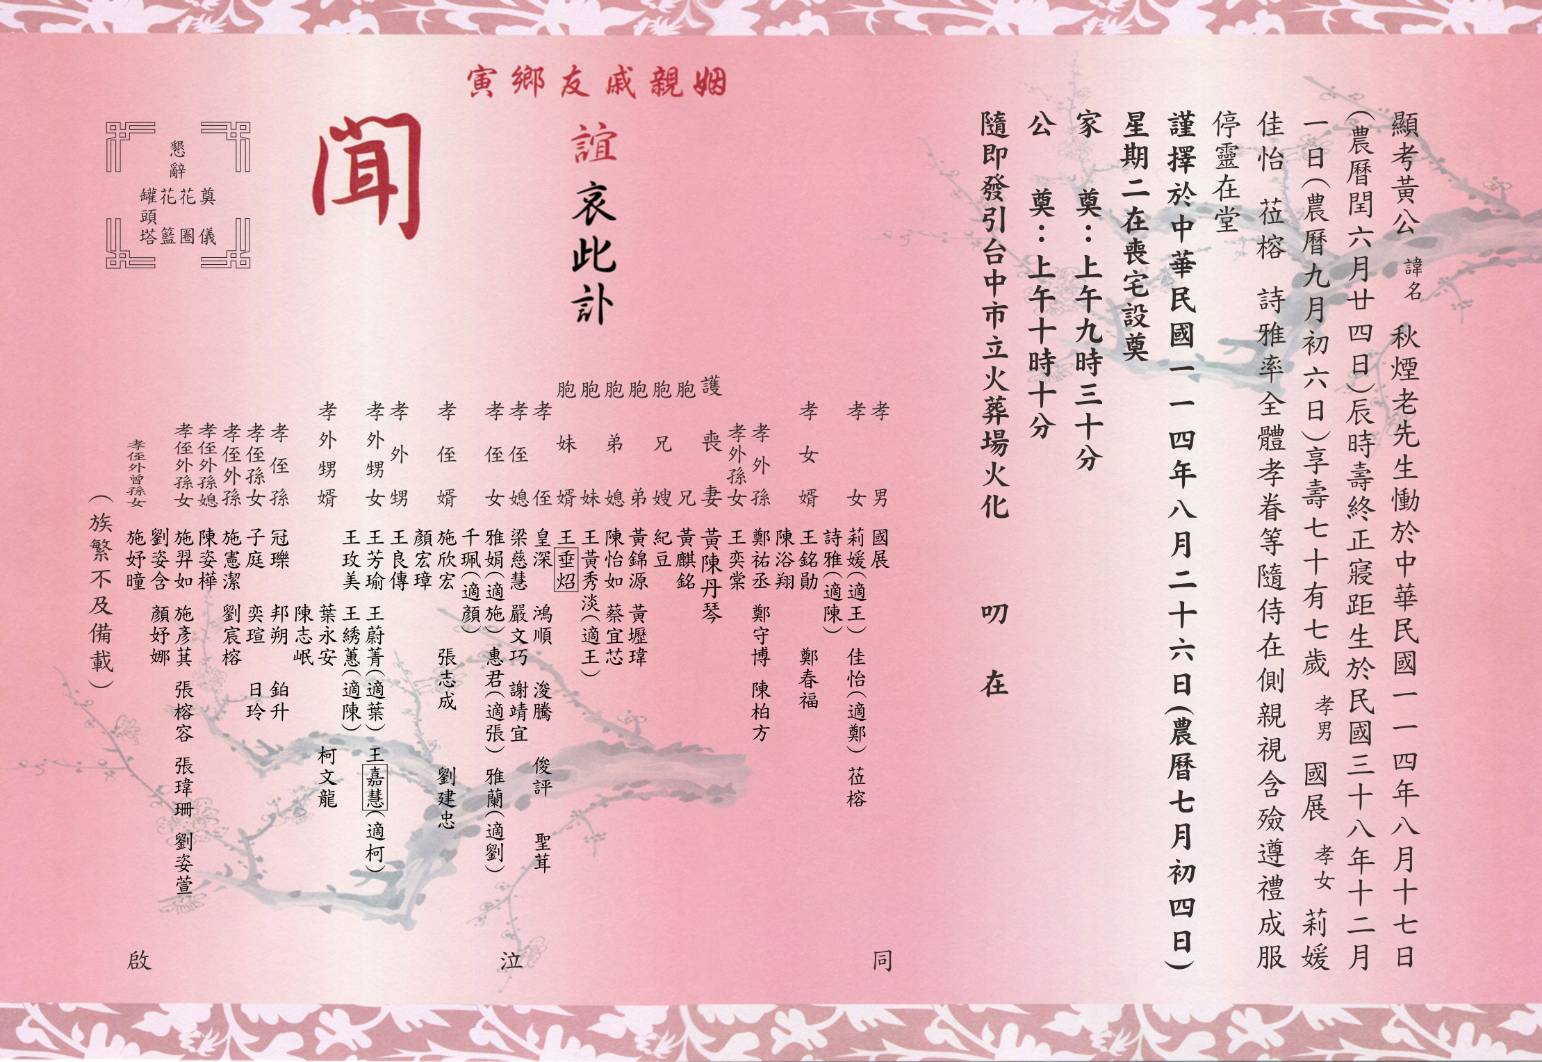 顯考黃公諱名秋煙老先生慟於中華民國一一四年八月十七日
(農曆閏六月廿四日)辰時壽終正寢距生於民國三十八年十二月
一日(農曆九月初六日)享壽七十有七歲 孝男 國展 孝女 莉媛
佳怡 莅榕 詩雅率全體孝眷等隨侍在側親視含殮遵禮成服
停靈在堂
謹擇於中華民國一一四年八月二十六日(農曆七月初四日)
星期二在喪宅設奠
家 奠:上午九時三十分
公 奠:上午十時十分
隨即發引台中市立火葬場火化 叨 在
姻親戚友鄉寅
誼哀此訃
聞
孝男 國展
孝女 莉媛(適王) 佳怡(適鄭) 莅榕
詩雅(適陳)
孝女婿 王銘勛 鄭春福
陳浴翔
孝外孫 鄭祐丞 鄭守博 陳柏方
孝外孫女 王奕棠
護喪妻 黃陳丹琴
胞兄 黃麒銘
胞兄嫂 紀豆
胞弟 黃錦源 黃壢瑋
胞弟媳 陳怡如 蔡宜芯
胞妹 王黃秀淡(適王)
胞妹婿 王垂炤
孝侄 皇深 鴻順 浚騰 俊評 聖茸
孝侄媳 梁慈慧 嚴文巧 謝靖宜
孝侄女 雅娟(適施) 惠君(適張) 雅蘭(適劉)
千珮(適顏)
孝侄婿 施欣宏 張志成 劉建忠
顏宏璋
孝外甥 王良傳
孝外甥女 王芳瑜 王蔚菁(適葉) 王嘉慧(適柯)
王玫美 王綉蕙(適陳)
孝外甥婿 葉永安 柯文龍
陳志岷
孝侄孫 冠瓅 邦朔 鉑升
孝侄孫女 子庭 奕瑄 日玲
孝侄外孫 施憲潔 劉宸榕
孝侄外孫媳 陳姿樺
孝侄外孫女 施羿如 施彥萁 張榕容 張瑋珊 劉姿萱
劉姿含 顏妤娜
孝侄外曾孫女 施妤曈
(族繁不及備載)
同 泣 啟
懇辭
奠儀
花圈
花籃
罐頭塔